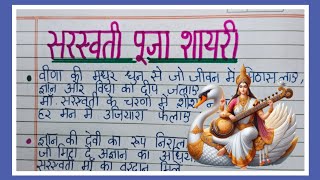 सरस्वती पूजा शायरी
वीणा की मधुर धुन से जो जीवन में मिठास लाए,
ज्ञान और विद्या का दीप जलाए
माँ सरस्वती के चरणों में शीश
हर मन में उजियारा फैलाए
ज्ञान की देवी का रूप निराला,
जो मिटा दे अज्ञान का अंधिया
सरस्वती माँ का वरदान मिले